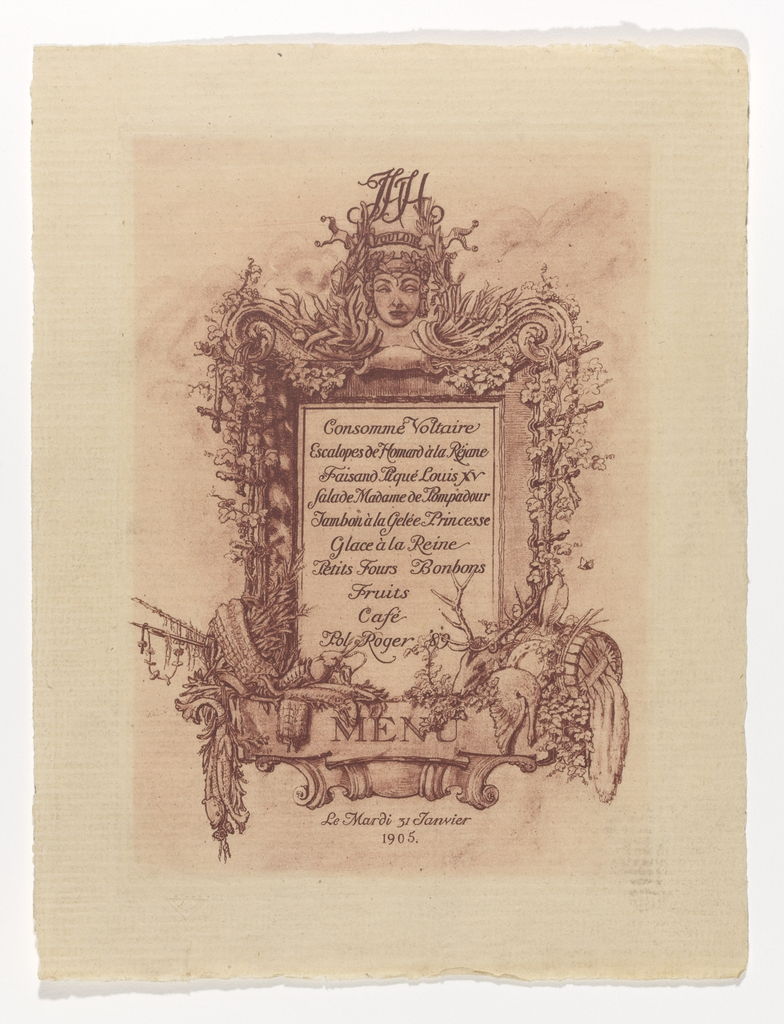 JJH
VOULOIR
Consommé Voltaire
Escalopes de Homard à la Réjane
Faisand Piqué Louis XV
Salade Madame de Pompadour
Jambon à la Gelée Princesse
Glace à la Reine
Petits Fours Bonbons
Fruits
Café
Pol Roger 89
MENU
Le Mardi 31 Janvier
1905.